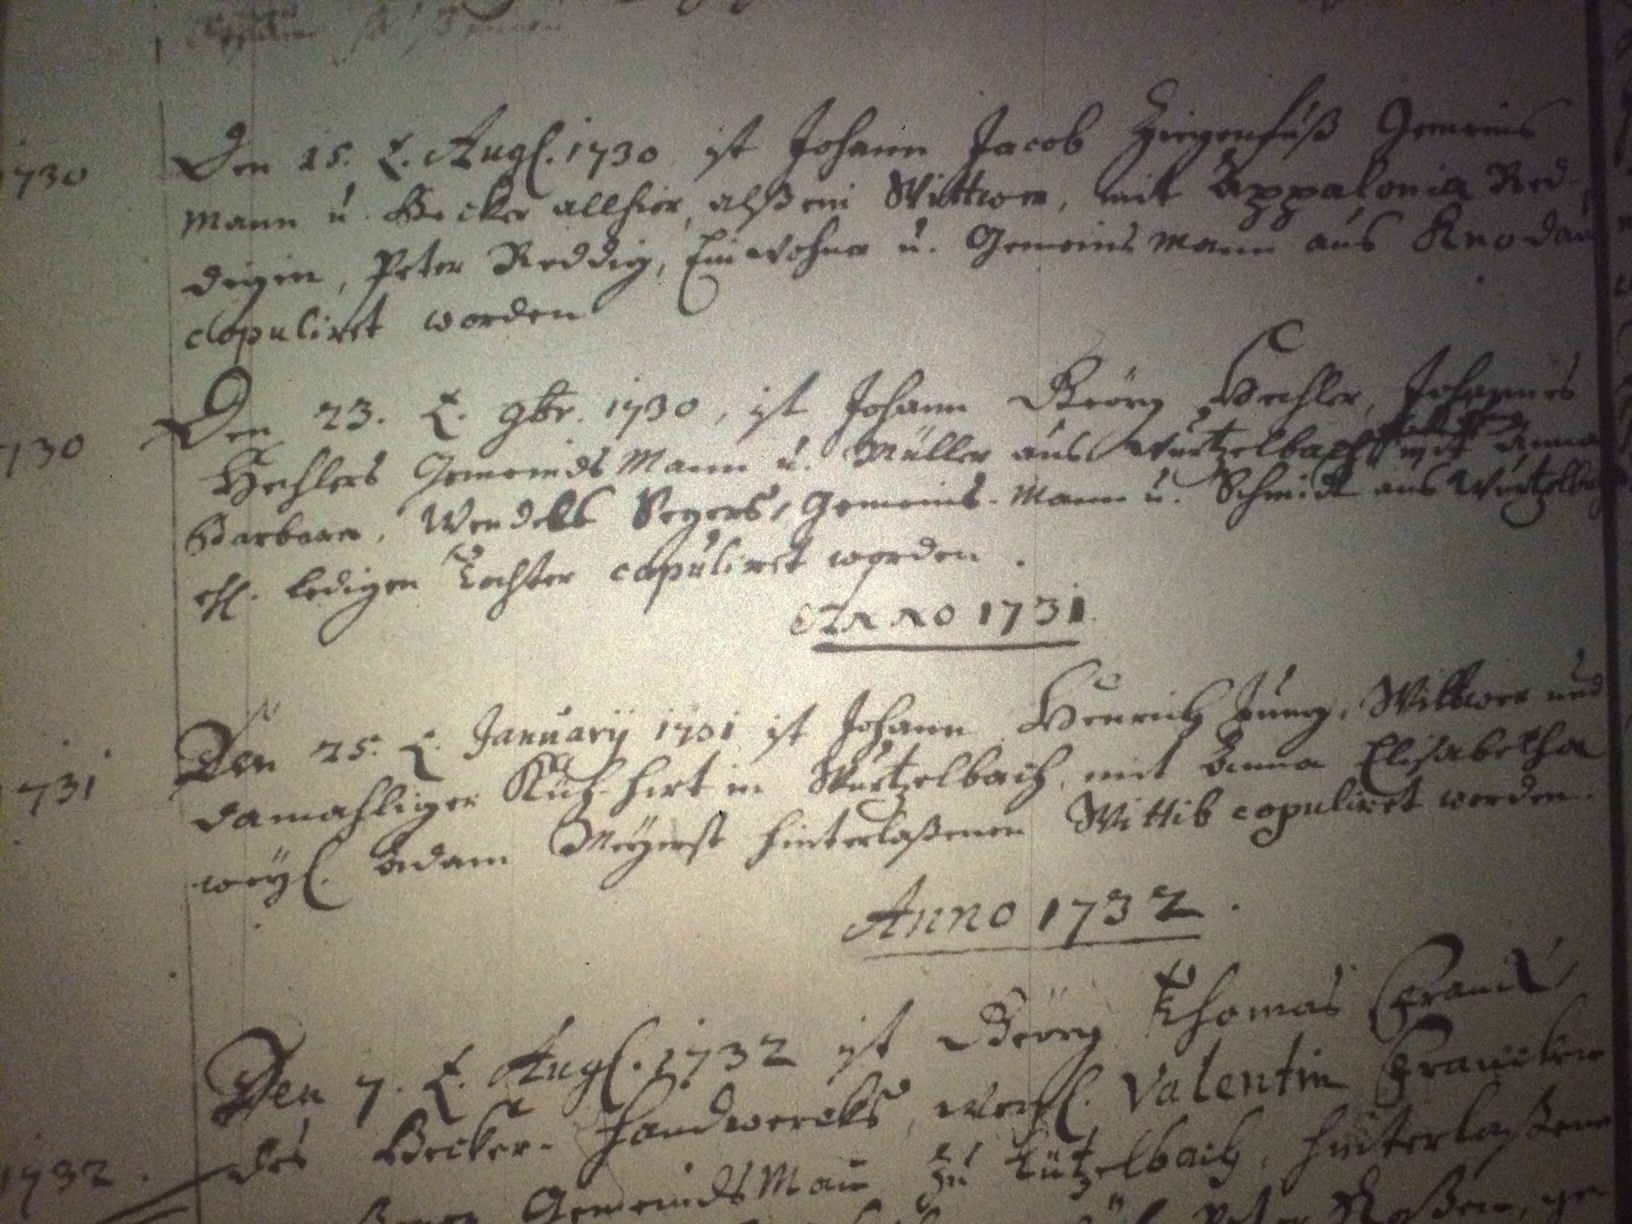 1730 Den 15. t. Aug. 1730 ist Johann Jacob Ziegenfuß Gemeins
Mann u. Becker allhier, alß ein Wittwer, mit Appalonia Red-
digin, Peter Reddig, Einwohner u. Gemeins Mann aus Knodau
copuliret worden
1730 Den 23. t. 9br. 1730, ist Johann Georg Hechler, Johannes
Hechlers Gemeinds Mann u. Müller aus Wurtzelbach mit Anna
Barbara, Wendels Segers, Gemeins-Mann u. Schmidt aus Wurtzelba
ehl. ledigen Tochter copuliret worden.
Anno 1731.
1731 Den 25. t. January 1731 ist Johann Henrich Jung, Wittwer und
damahliger Küh-hirt in Wurtzelbach, mit Anna Elisabetha
weyl. Adam Meyerst hinterlaßenen Wittib copuliret worden.
Anno 1732.
Den 7. t. Aug. 1732 ist Georg Thomas Franck,
des Becker-handwercks, weyl. Valentin Francken
1732. Gemeinds Man zu Lützelbach, hinterlaßene
Peter